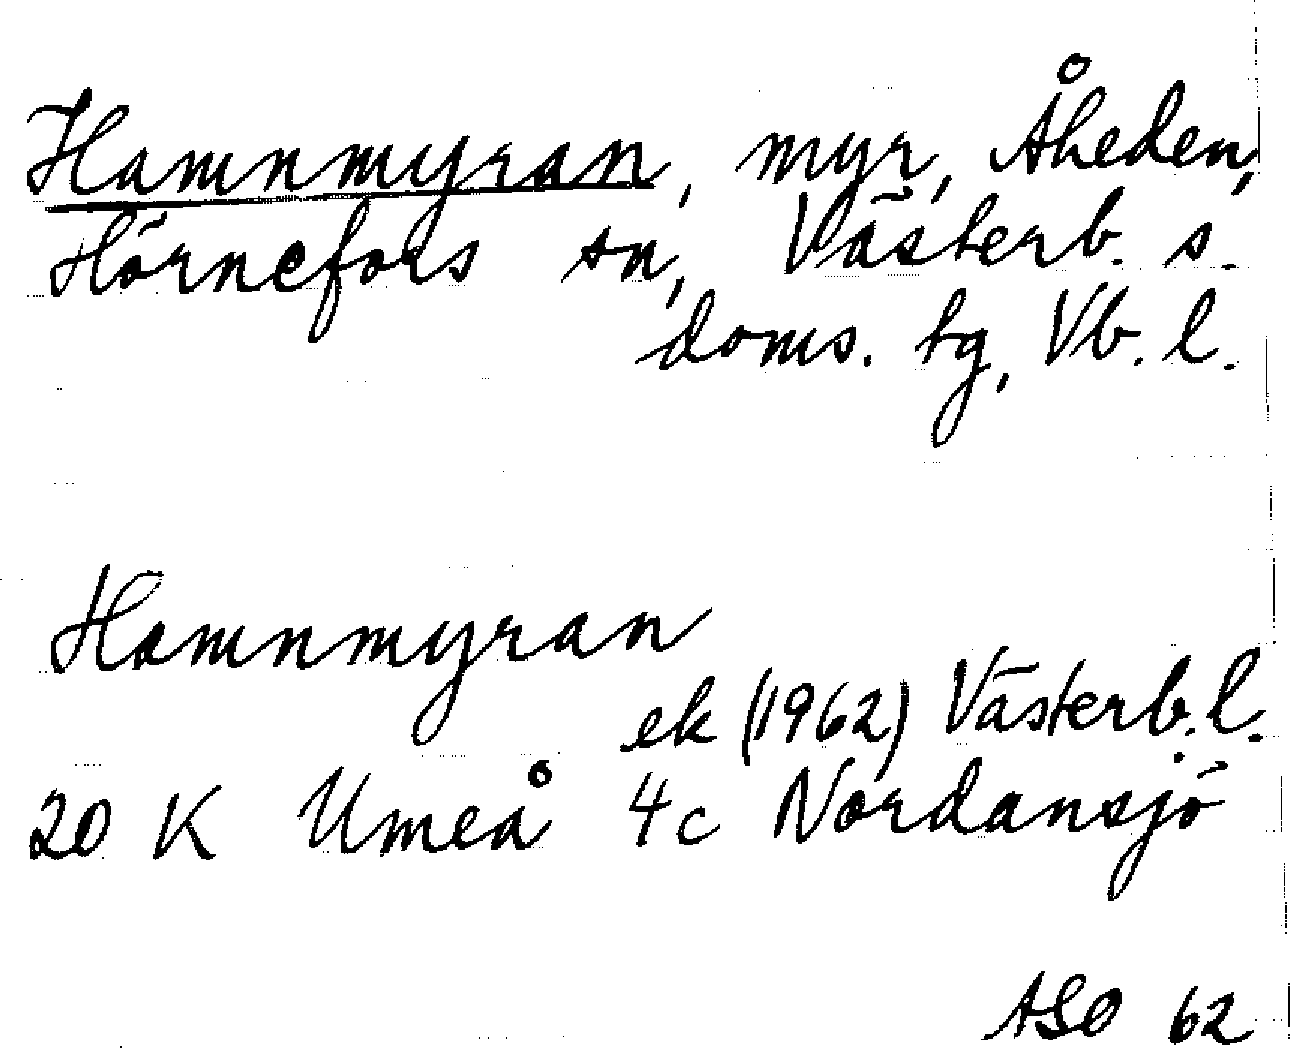 Hamnmyran, myr, Åheden,
Hörnefors sn, Västerb. s.
doms. tg, Vb. l.
Hamnmyran
ek (1962) Västerb. l.
20 K Umeå 4c Nordansjö
ASO 62